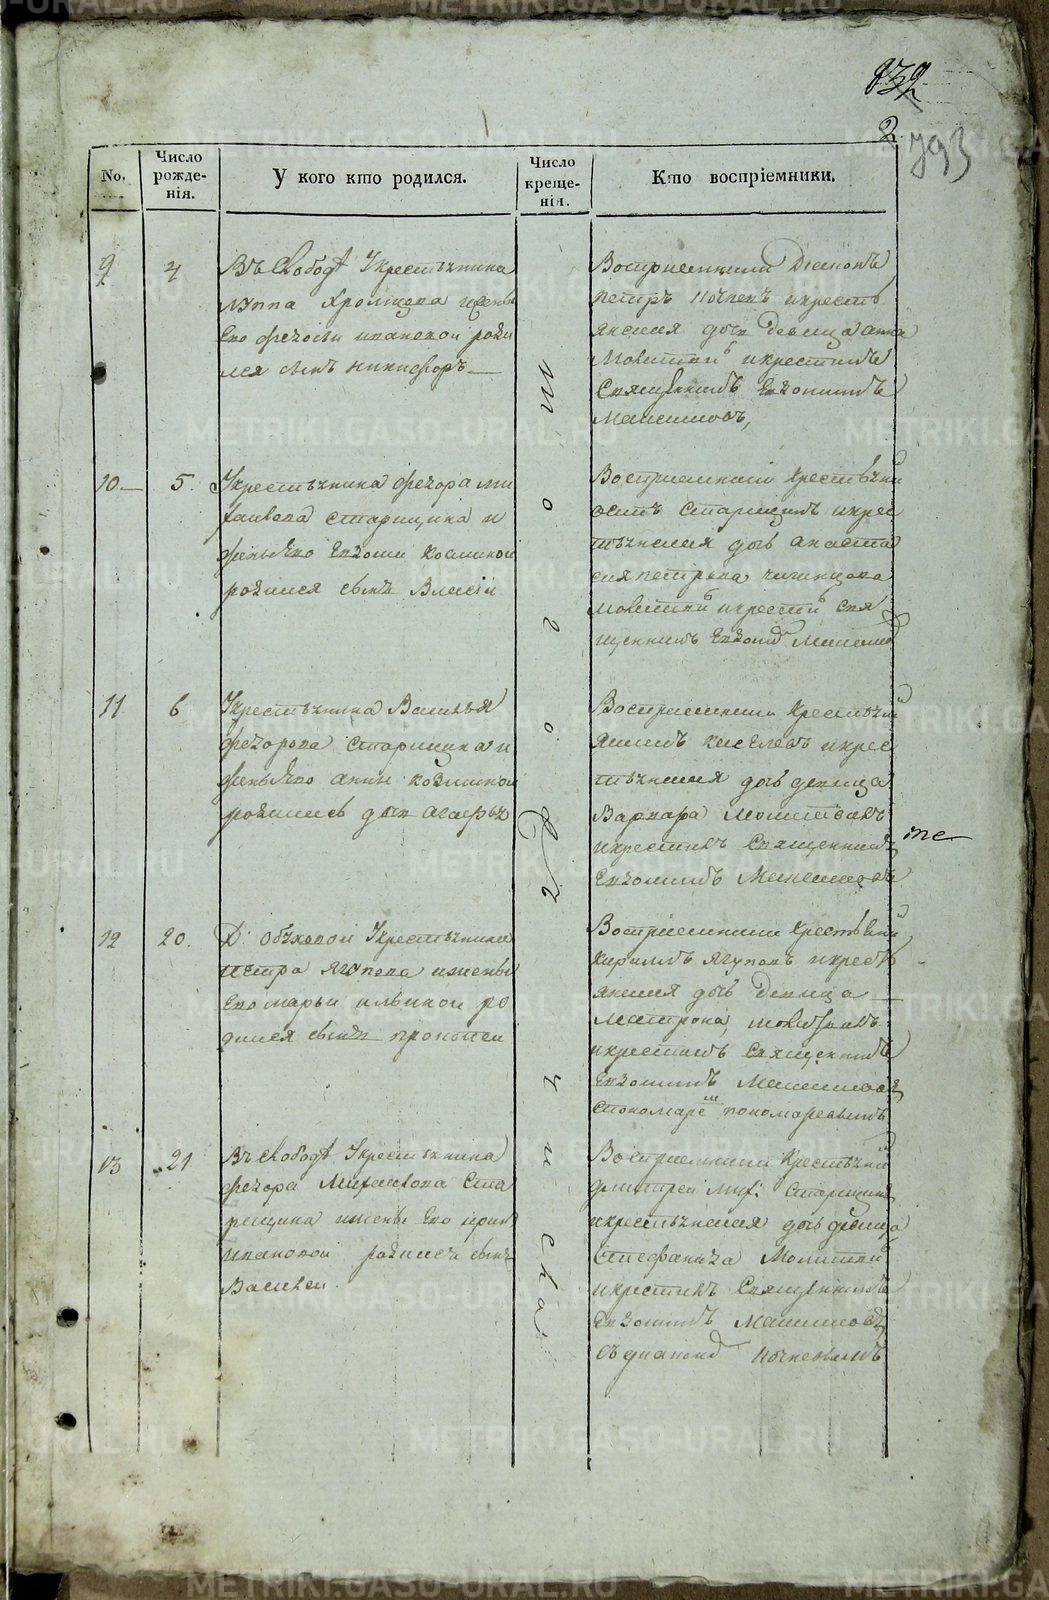 832
2
793
No.
Число рожде-нія.
У кого кто родился.
Число креще-нія.
Кто воспріемники.
9
4
Въ Слободѣ Укрестьянина
его Федосьи Ивановой роди
лся сынъ Никифоръ
Воспріемники Діаконъ
Петръ икресть
янская дочь девица Анна
Молитвилъ икрестилъ
Священникъ Евдокимъ
Максимовъ,
10
5.
Укрестьянина Федора Ми
хаилова Старицина и
жены его Евдокии Козминой
родился сынъ Власій
Воспріемники Крестьянинъ
Старицинъ икрес
тьянская дочь Анаста
сия Петрова
Молитвилъ икрестилъ Свя
щенникъ Евдокимъ Максимовъ
11
6
Укрестьянина Василья
Федорова Старицина и
жены его Анны Козминой
родилась дочь Агафья
Воспріемники Крестьянинъ
Киселевъ икрес
тьянская дочь девица
Варвара Молитвилъ
икрестилъ Священникъ
Евдокимъ Максимовъ
те
12
20.
Д: Обуховой Укрестьянина
Петра Ягупова ижены
его Марьи Ильиной ро
дился сынъ Прокопей
Воспріемники Крестьянинъ
Кирилъ Ягуповъ икресть
янская дочь девица
Матрона, молитвилъ
икрестилъ Священникъ
Евдокимъ Максимовъ
спономаремъ Пономаревымъ
13
21
Въ Слободѣ Укрестьянина
Федора Михайлова Ста
рицина ижены его Ирины
Ивановой родился сынъ
Василей.
Воспріемники Крестьянинъ
Дмитрей Мих: Старицинъ
икрестьянская дочь девица
Степанида Молитвилъ
икрестилъ Священникъ
Евдокимъ Максимовъ
съ диакономъ
того
же
числа
METRIKI.GASO-URAL.RU